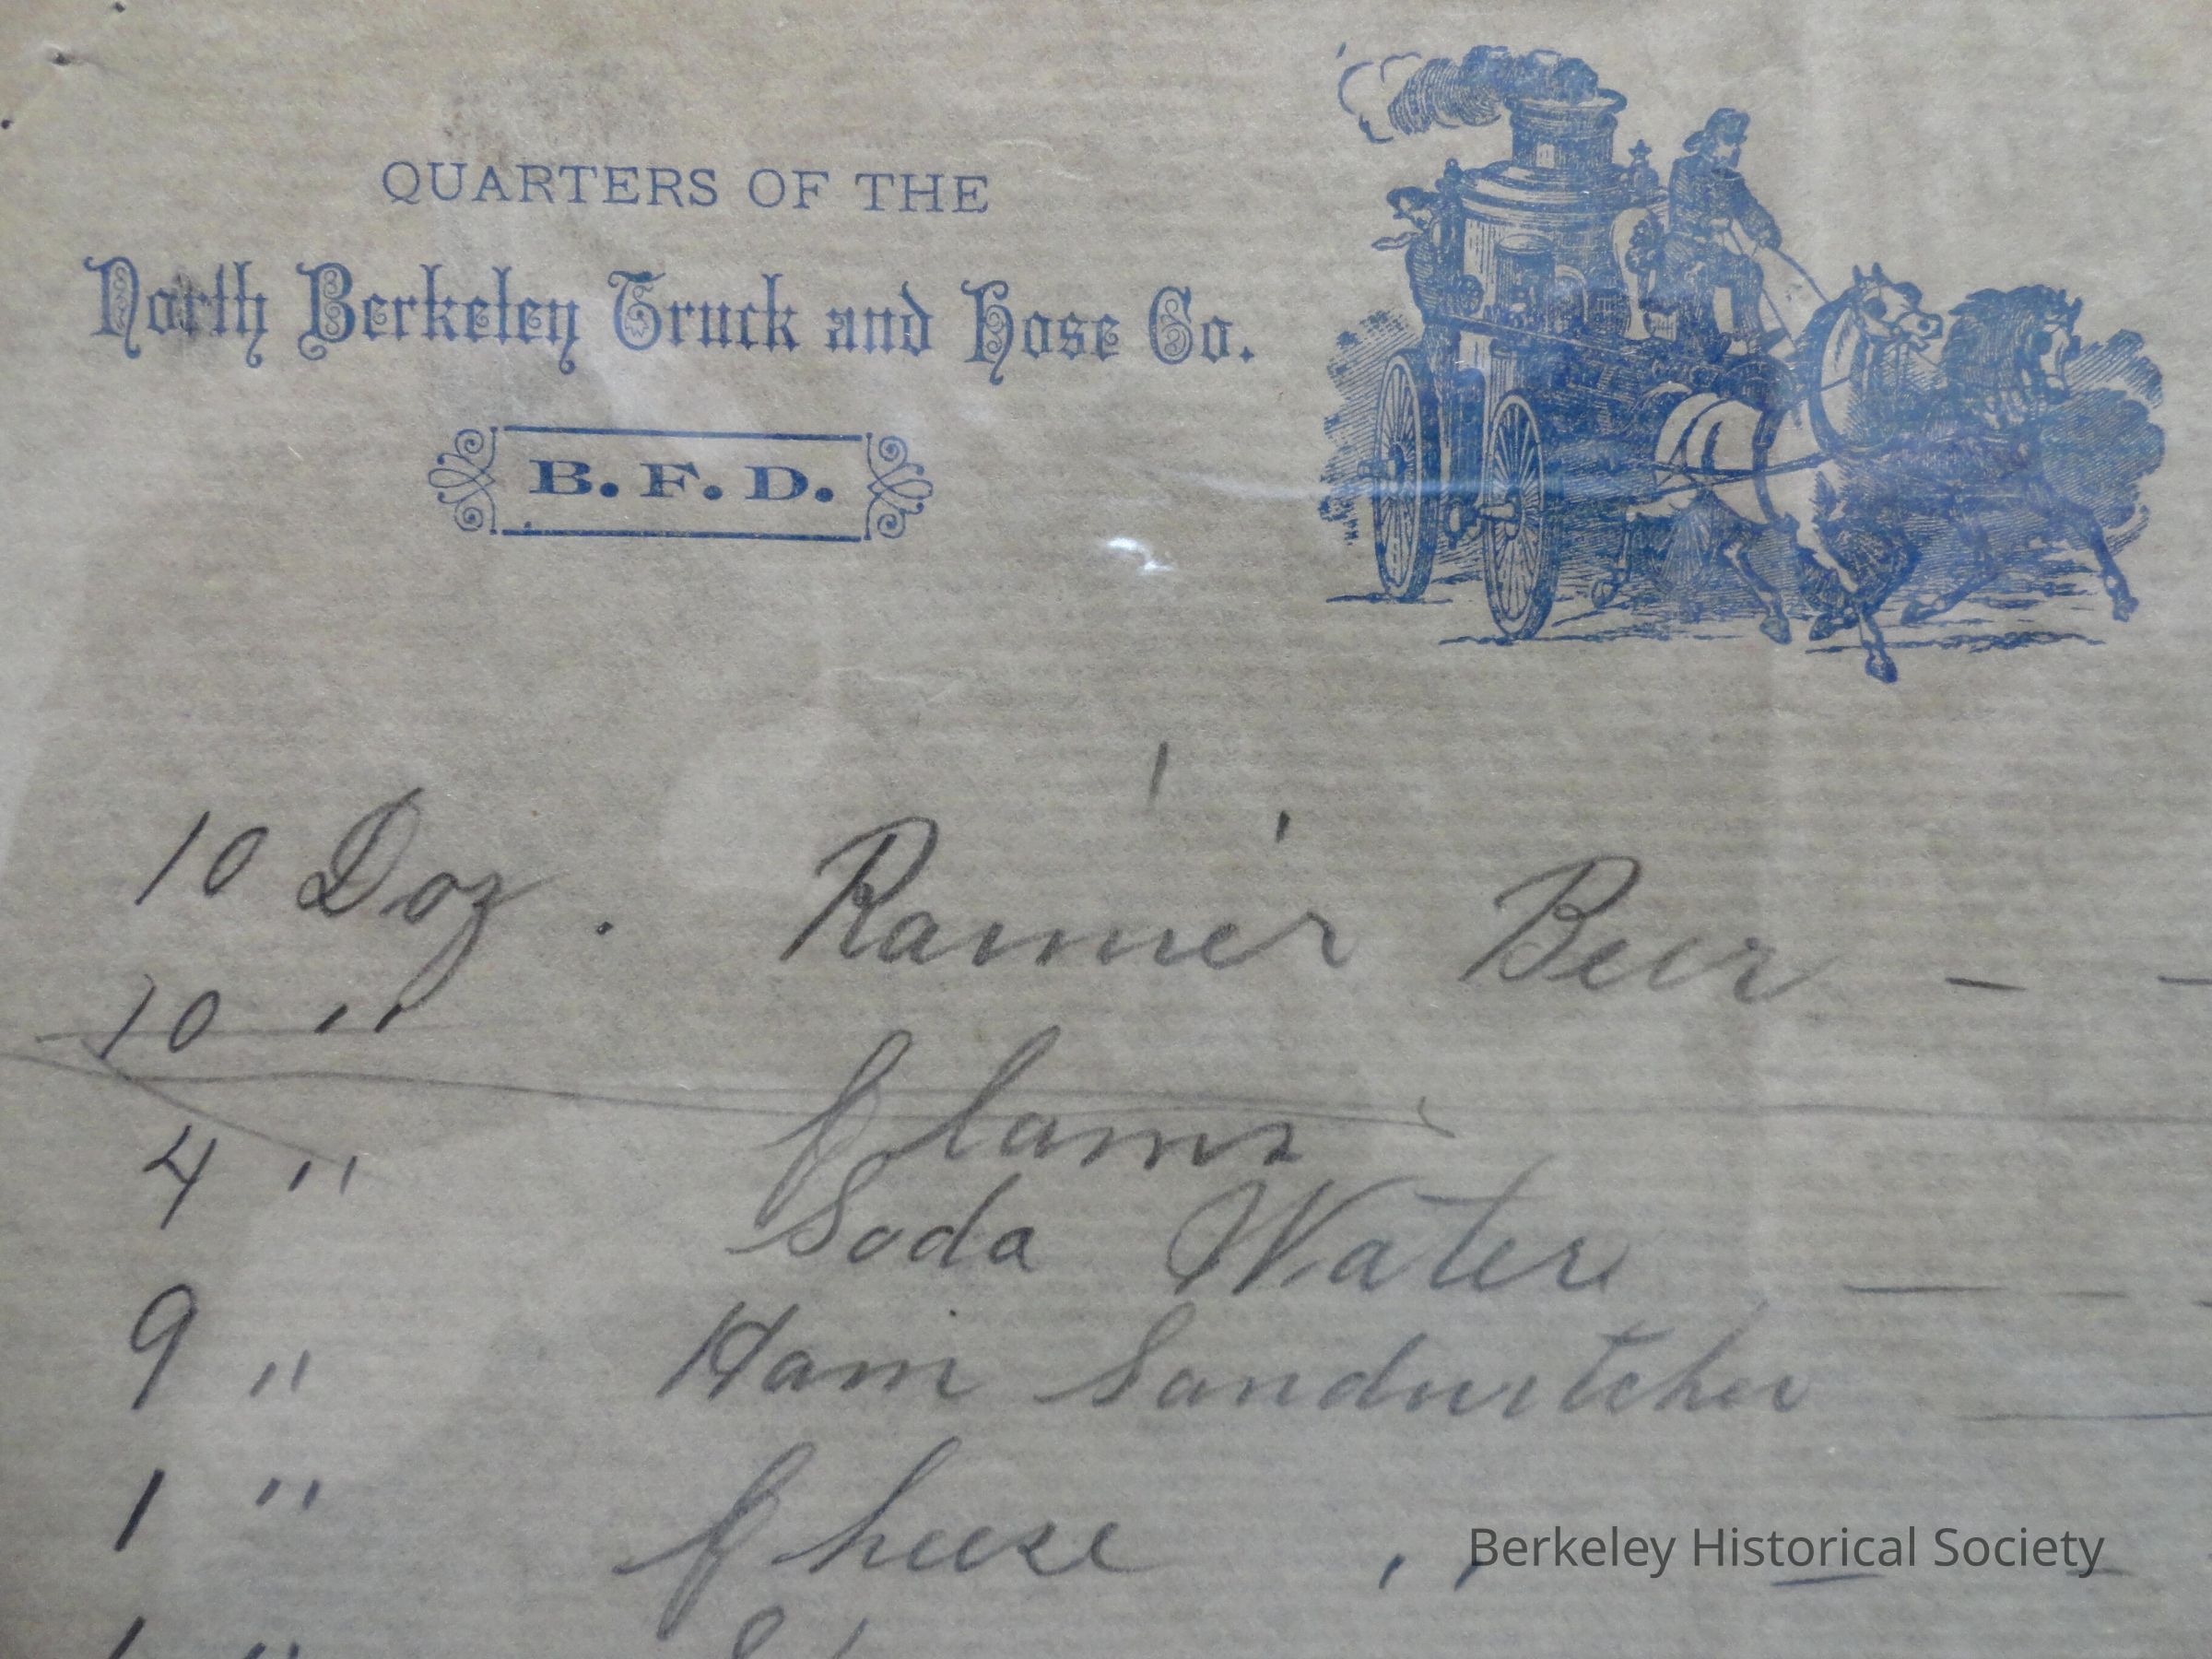 QUARTERS OF THE
North Berkeley Truck and Hose Co.
B. F. D.
10 Doz. Rainier Beer - -
10 " Clams
4 " Soda Water — —
9 " Ham Sandwitches —
1 " Cheese " — -
1 "
Berkeley Historical Society